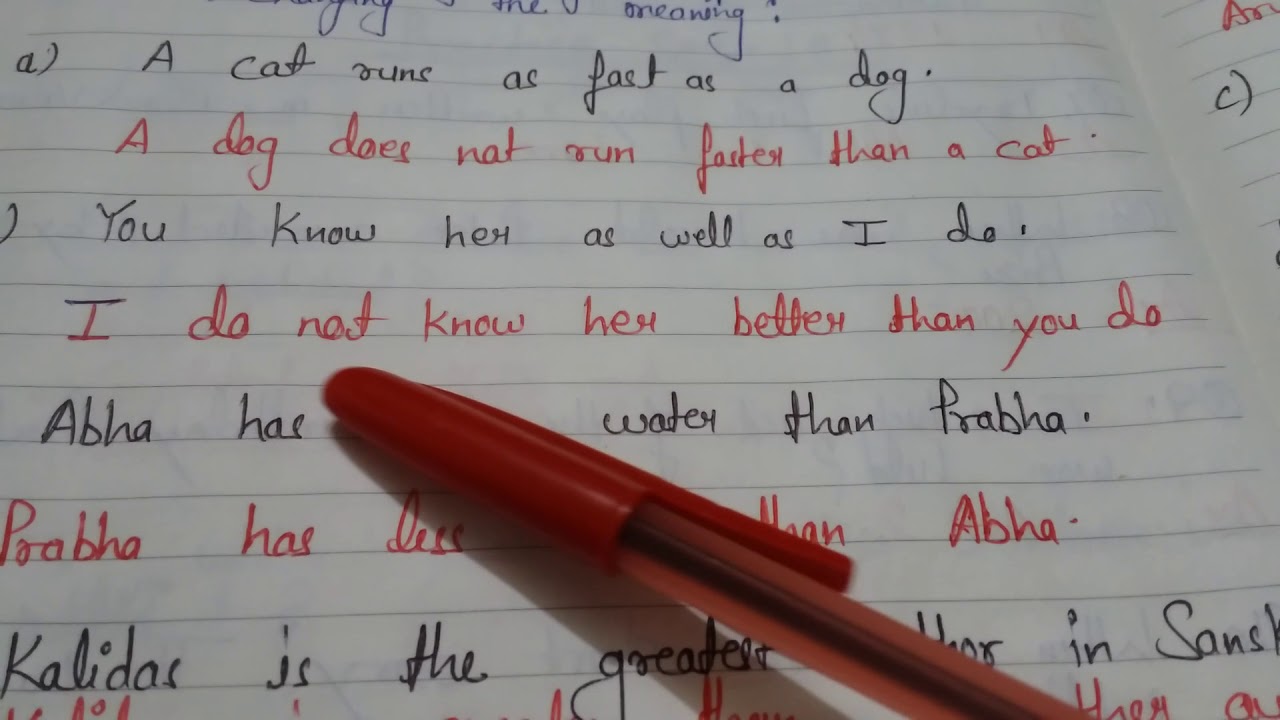 changing the meaning :
a) A cat runs as fast as a dog.
A dog does not run faster than a cat.
) You know her as well as I do.
I do not know her better than you do
Abha has water than Prabha.
Prabha has less than Abha.
Kalidas is the greatest in
c)